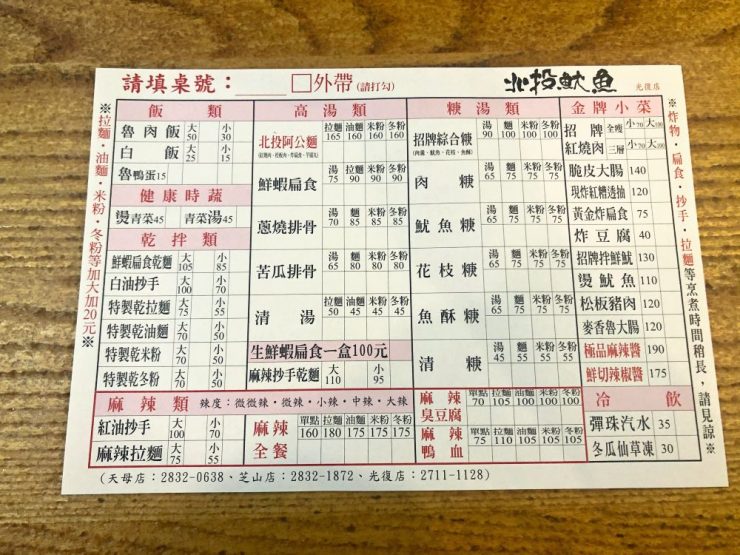 請填桌號：____ □外帶(請打勾) 北投魷魚 光復店
※拉麵、油麵、米粉、冬粉等加大加20元※
飯類
魯肉飯 大50 小30
白飯 大25 小15
魯鴨蛋15
健康時蔬
燙青菜45 青菜湯45
乾拌類
鮮蝦扁食乾麵 大105 小85
白油抄手 大100 小70
特製乾拉麵 大75 小55
特製乾油麵 大70 小50
特製乾米粉 大70 小50
特製乾冬粉 大70 小50
高湯類
北投阿公麵 拉麵165 油麵160 米粉160 冬粉160
鮮蝦扁食 湯75 拉麵90 油麵90 米粉90 冬粉90
蔥燒排骨 湯70 麵85 米粉85 冬粉85
苦瓜排骨 湯65 麵80 米粉80 冬粉80
清湯 拉麵50 油麵45 米粉45 冬粉45
生鮮蝦扁食一盒100元
麻辣抄手乾麵 大110 小95
焿湯類
招牌綜合焿 湯90 麵100 米粉100 冬粉100
肉焿 湯65 麵75 米粉75 冬粉75
魷魚焿 湯65 麵75 米粉75 冬粉75
花枝焿 湯65 麵75 米粉75 冬粉75
魚酥焿 湯65 麵75 米粉75 冬粉75
清焿 湯45 麵55 米粉55 冬粉55
金牌小菜
招牌紅燒肉 全瘦 小70 大100
三層 小70 大100
脆皮大腸 140
現炸紅糟透抽 120
黃金炸扁食 75
炸豆腐 40
招牌拌鮮魷 130
燙魷魚 110
松板豬肉 120
麥香魯大腸 120
極品麻辣醬 190
鮮切辣椒醬 175
※炸物、扁食、抄手、拉麵等烹煮時間稍長，請見諒※
麻辣類 辣度：微微辣、微辣、小辣、中辣、大辣
紅油抄手 大100 小70
麻辣拉麵 大75 小55
麻辣全餐 單點160 拉麵180 油麵175 米粉175 冬粉175
麻辣臭豆腐 單點70 拉麵105 油麵100 米粉100 冬粉100
麻辣鴨血 單點75 拉麵110 油麵105 米粉105 冬粉105
冷飲
彈珠汽水 35
冬瓜仙草凍 30
(天母店：2832-0638、芝山店：2832-1872、光復店：2711-1128)